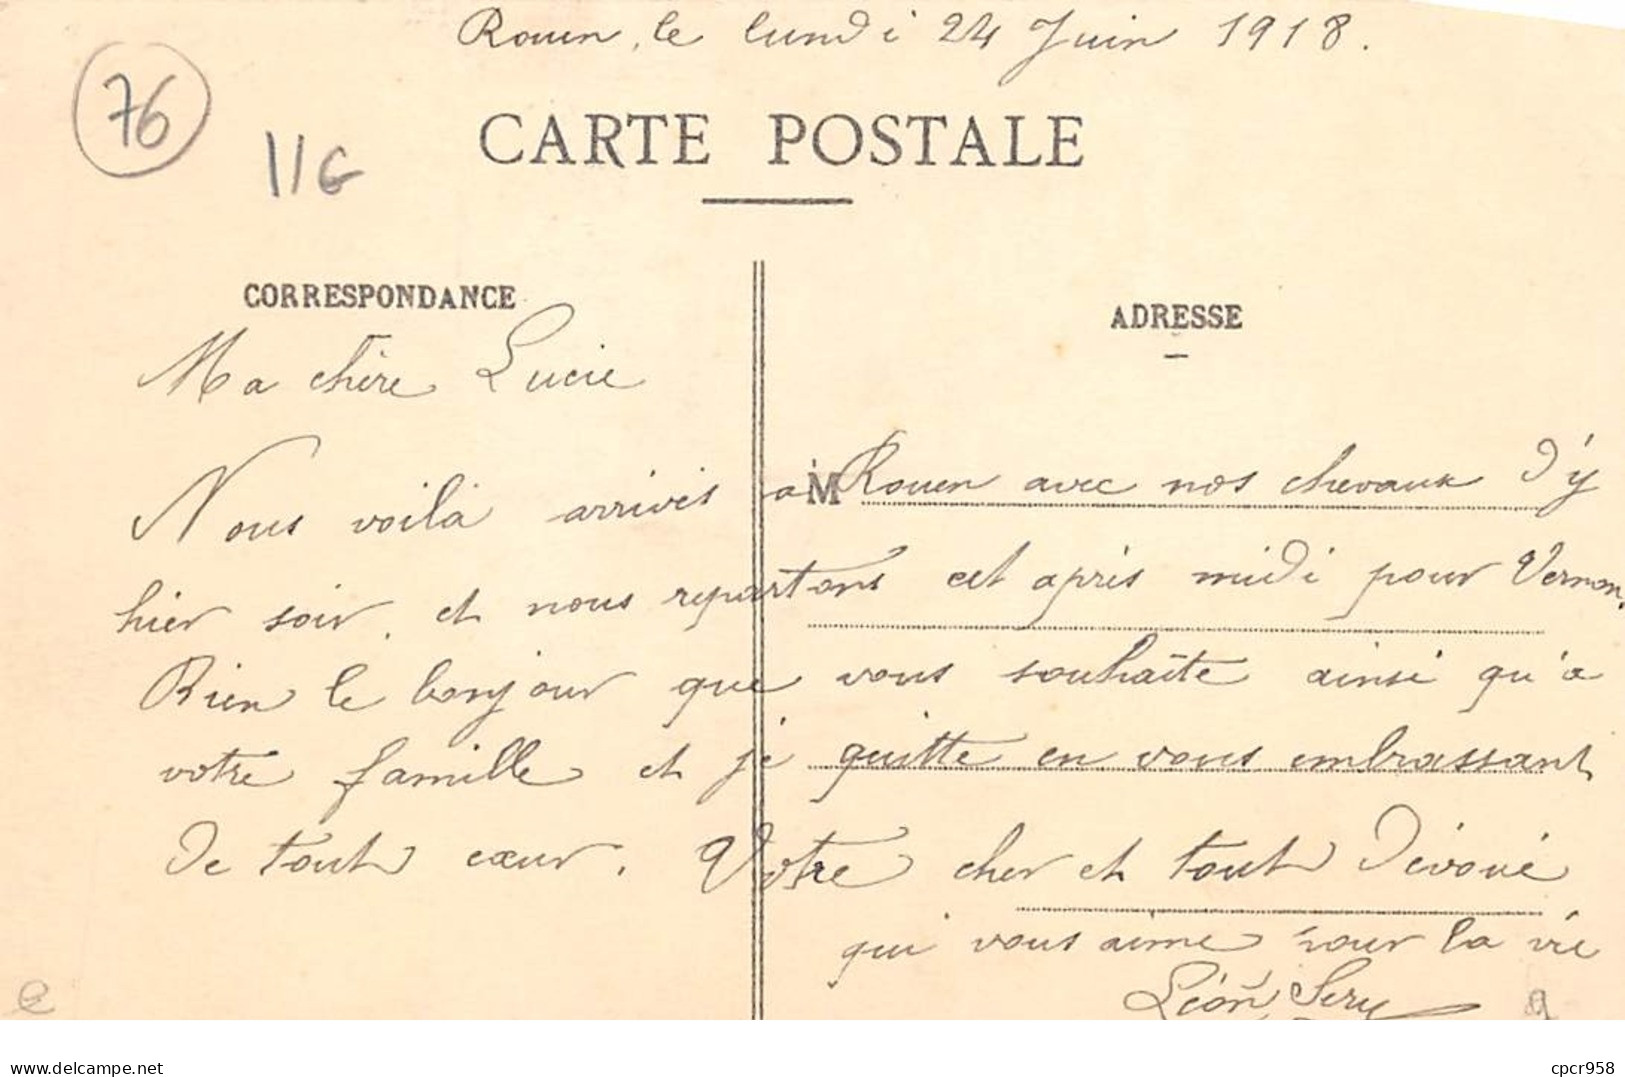 Rouen, le lundi 24 Juin 1918.
76
11G
CARTE POSTALE
CORRESPONDANCE
ADRESSE
Ma chère Lucie
Nous voilà arrivés a M Rouen avec nos chevaux d'y
hier soir, et nous repartons cet après midi pour Vernon.
Rien le bonjour que vous souhaite ainsi qu'a
votre famille et je quitte en vous embrassant
de tout cœur. Votre cher et tout dévoué
qui vous aime pour la vie
Léon Sery
delcampe.net
cpcr958